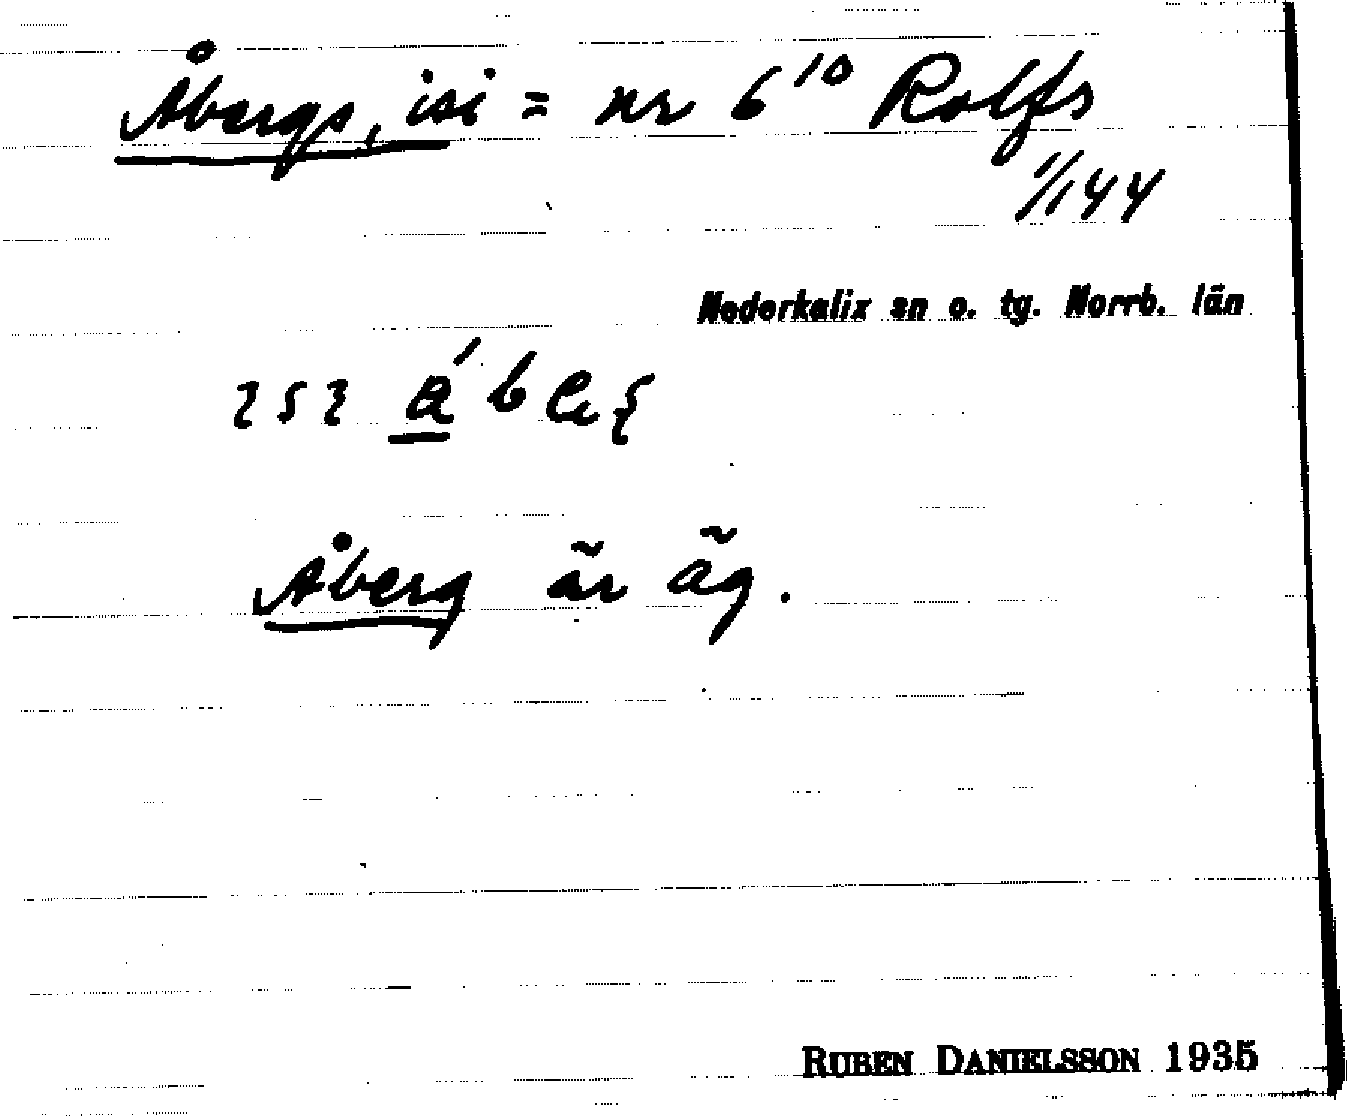 Åbergs, isi = nr 6¹⁰ Rolfs
1/144
Nederkalix sn o. tg. Norrb. län
Åberg är äg.
RUBEN DANIELSSON 1935